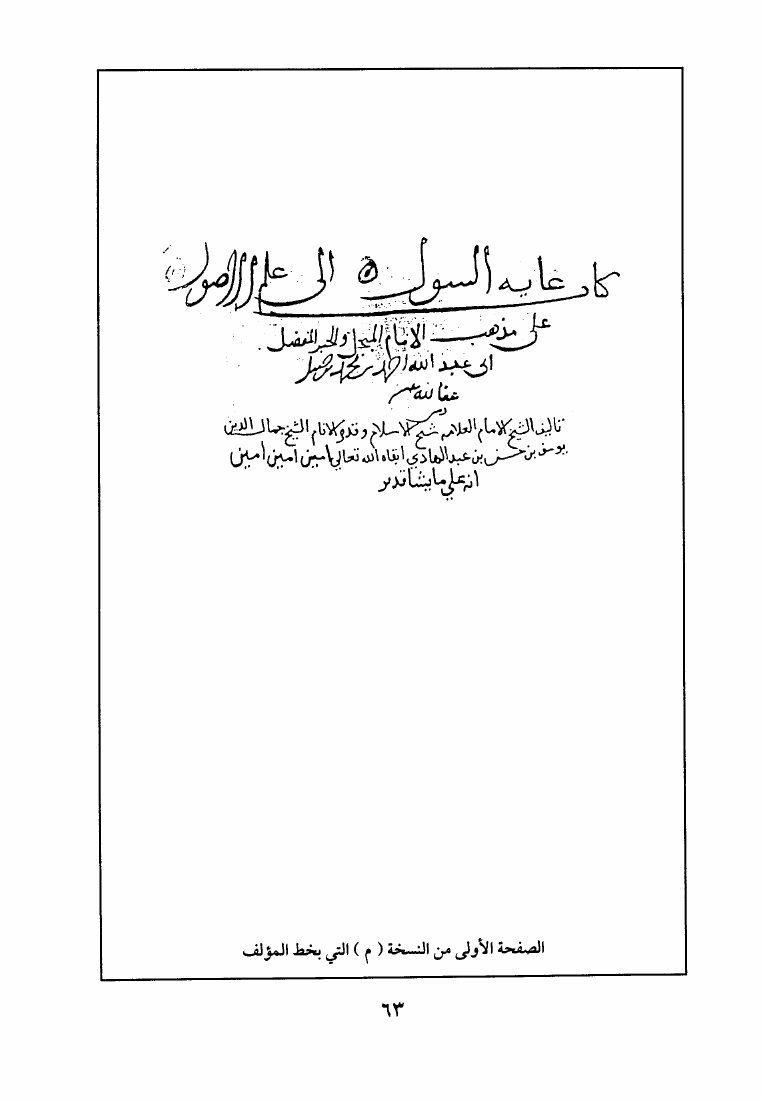 كتاب غايه السول ه الى علم الاصول
على مذهب الامام المبجل والحبر المفضل
ابي عبد الله احمد بن محمد بن حنبل
عفا الله عنه
تاليف الشيخ الامام العلامه شيخ الاسلام وقدوة الانام الشيخ جمال الدين
يوسف بن حسن بن عبد الهادي ابقاه الله تعالى امين امين امين
انه على ما يشا قدير
الصفحة الأولى من النسخة ( م ) التي بخط المؤلف
٦٣